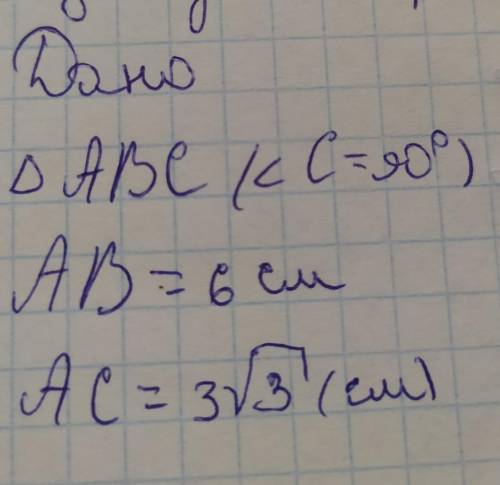 Дано
△ ABC (< C = 90°)
AB = 6 см
AC = 3√3 (см)